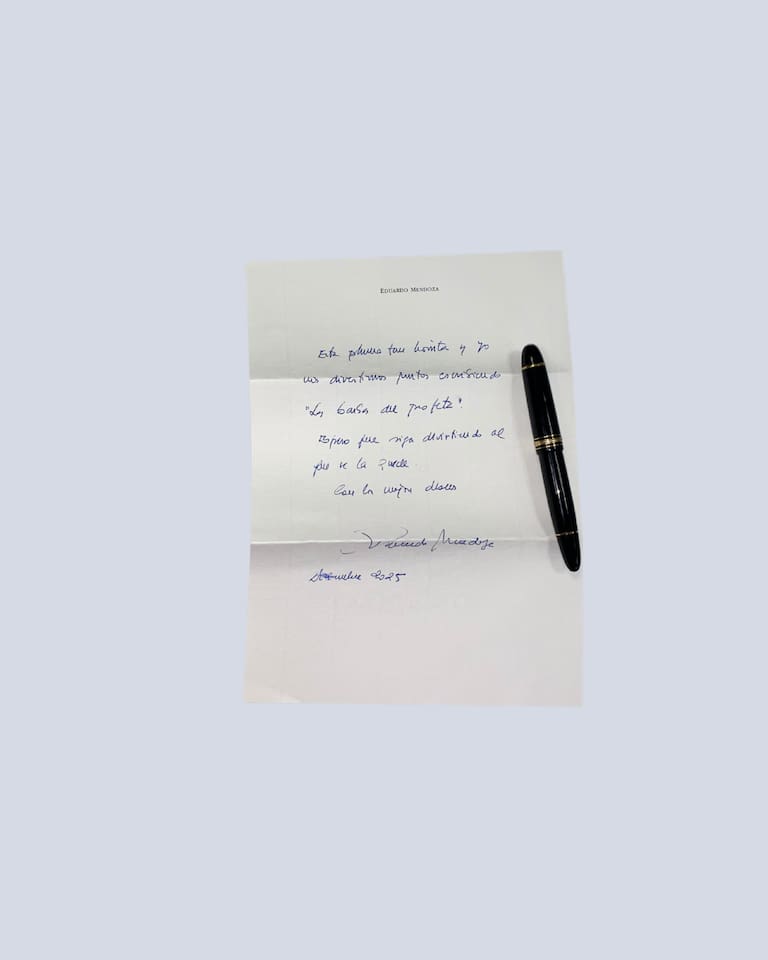 EDUARDO MENDOZA
Esta pluma tan bonita y yo
nos divertimos juntos escribiendo
"Las barbas del profeta".
Espero que siga divirtiendo al
que se la quede.
Con los mejores deseos
Eduardo Mendoza
Diciembre 2025